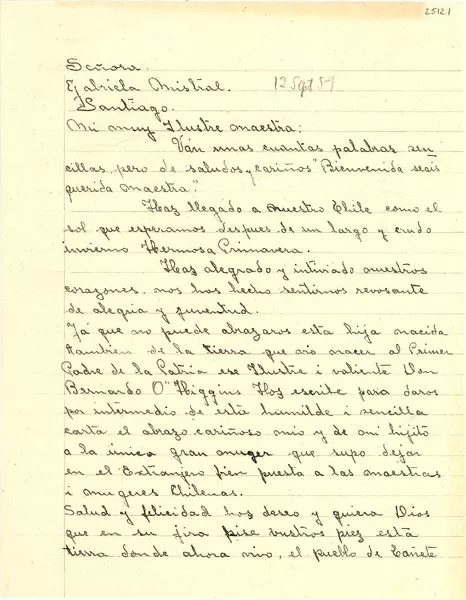 25121
Señora.
Gabriela Mistral.
12 Sept 54
Santiago.
Mi muy Ilustre maestra:
Ván unas cuantas palabras sen-
cillas, pero de saludos y cariños "Bienvenida seáis
querida maestra".
Haz llegado a nuestro Chile como el
sol que esperamos despues de un largo y crudo
invierno Hermosa Primavera.
Haz alegrado y intiviado nuestros
corazones, nos haz hecho sentirnos revosante
de alegria y juventud.
Já que no puede abrazaros esta hija nacida
tambien de la tierra que vió nacer al Primer
Padre de la Patria ese Ilustre i valiente Don
Bernardo O"Higgins Hoz escribe para daros
por intermedio de está humilde i sencilla
carta el abrazo cariñoso mio y de mi hijito
a la única gran muger que supo dejar
en el Extranjero bien puesta a las maestras
i mugeres Chilenas.
Salud y felicidad hos deseo y quiera Dios
que en su jira pise vustros piez está
tierra donde ahora vivo, el pueblo de Cañete